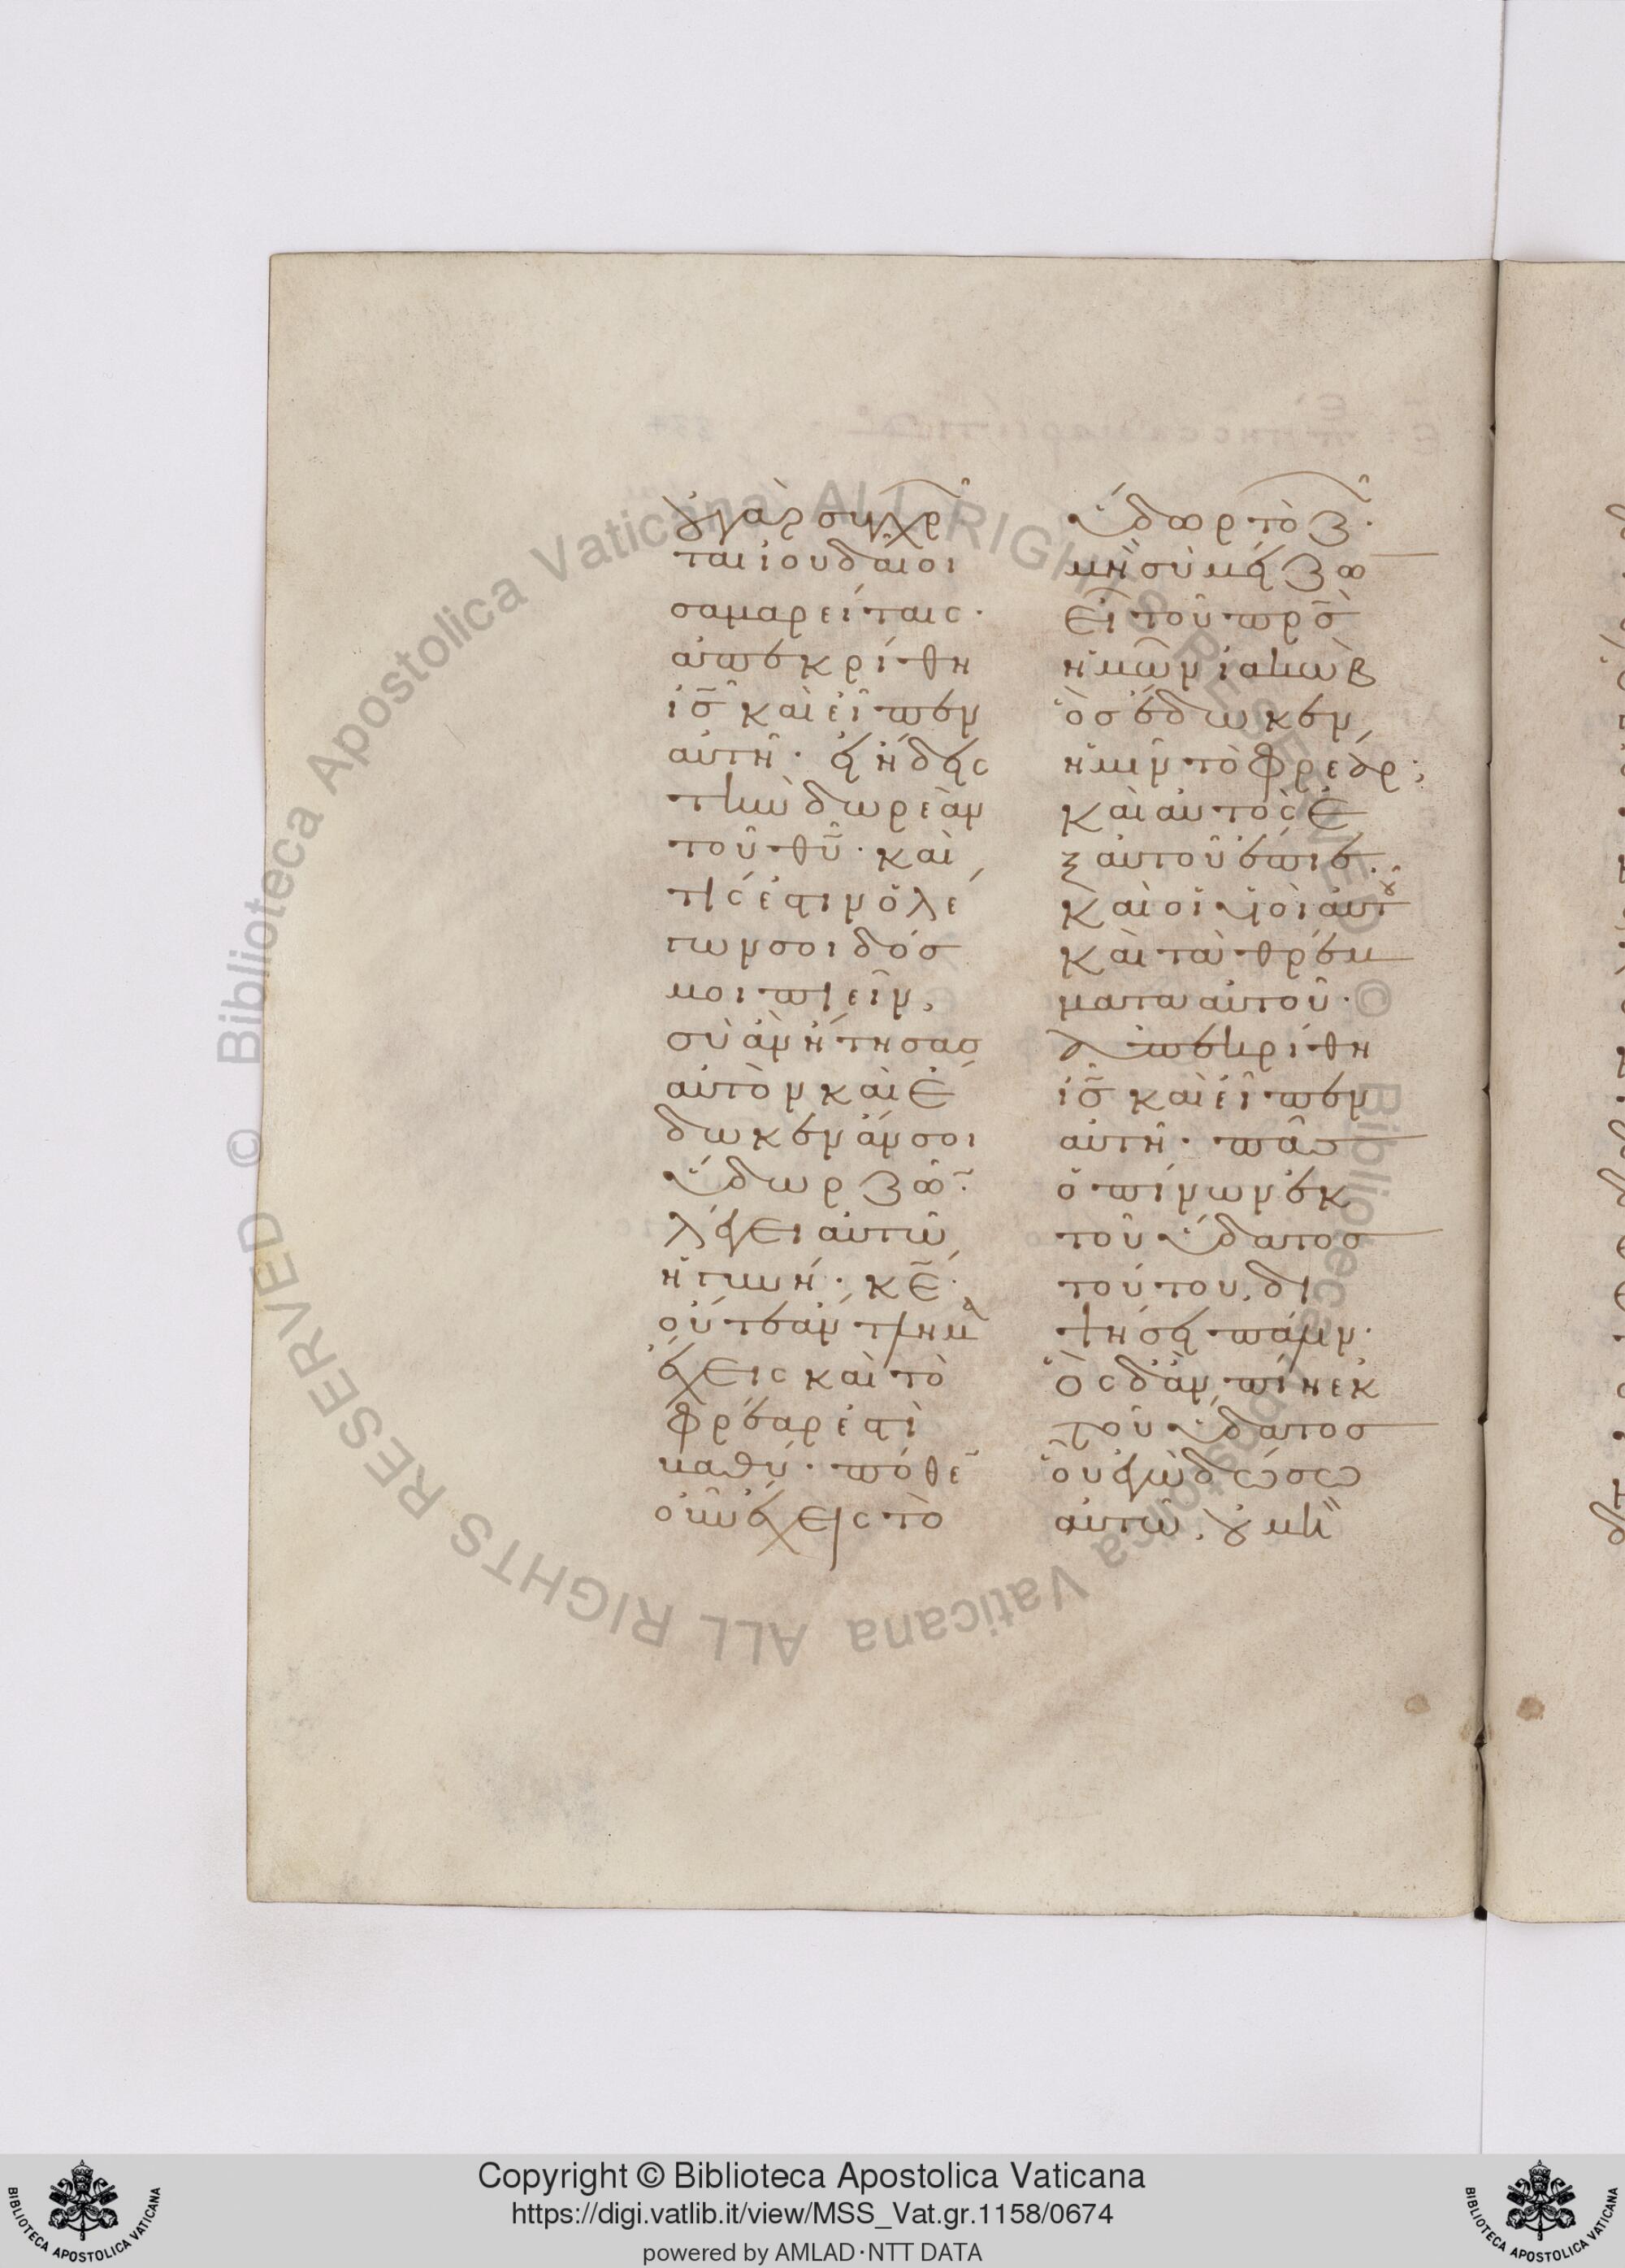 οὐ γὰρ συγχρῶν
ται ἰουδαῖοι
σαμαρείταις·
ἀπεκρίθη
ἰ̅ς̅ καὶ εἶπεν
αὐτῆ· εἰ ἤδεις
τὴν δωρεὰν
τοῦ θ̅υ̅· καὶ
τίς ἐστιν ὁ λέ
γων σοι δός
μοι πιεῖν,
σὺ ἂν ἤτησας
αὐτὸν καὶ ἔ
δωκεν ἄν σοι
ὕδωρ ζῶν·
λέγει αὐτῶ
ἡ γυνή· κ̅ε̅·
οὔτε ἄντλημα
ἔχεις καὶ τὸ
φρέαρ ἐστὶ
βαθύ· πόθεν
οὖν ἔχεις τὸ
ὕδωρ τὸ ζῶν·
μὴ σὺ μείζων
εἶ τοῦ πρ̅ς̅
ἡμῶν ἰακὼβ
ὃς ἔδωκεν
ἡμῖν τὸ φρέαρ;
καὶ αὐτὸς ἐ
ξ αὐτοῦ ἔπιε·
καὶ οἱ υἱοὶ αὐτοῦ
καὶ τὰ θρέμ
ματα αὐτοῦ·
ἀπεκρίθη
ἰ̅ς̅ καὶ εἶπεν
αὐτῆ· πᾶς
ὁ πίνων ἐκ
τοῦ ὕδατος
τούτου, δι
ψήσει πάλιν·
ὃς δ' ἂν πίη ἐκ
τοῦ ὕδατος
οὗ ἐγὼ δώσω
αὐτῶ, οὐ μὴ
Copyright © Biblioteca Apostolica Vaticana
https://digi.vatlib.it/view/MSS_Vat.gr.1158/0674
powered by AMLAD·NTT DATA
BIBLIOTECA APOSTOLICA VATICANA
BIBLIOTECA APOSTOLICA VATICANA
© Biblioteca Apostolica Vaticana ALL RIGHTS RESERVED
© Biblioteca Apostolica Vaticana ALL RIGHTS RESERVED